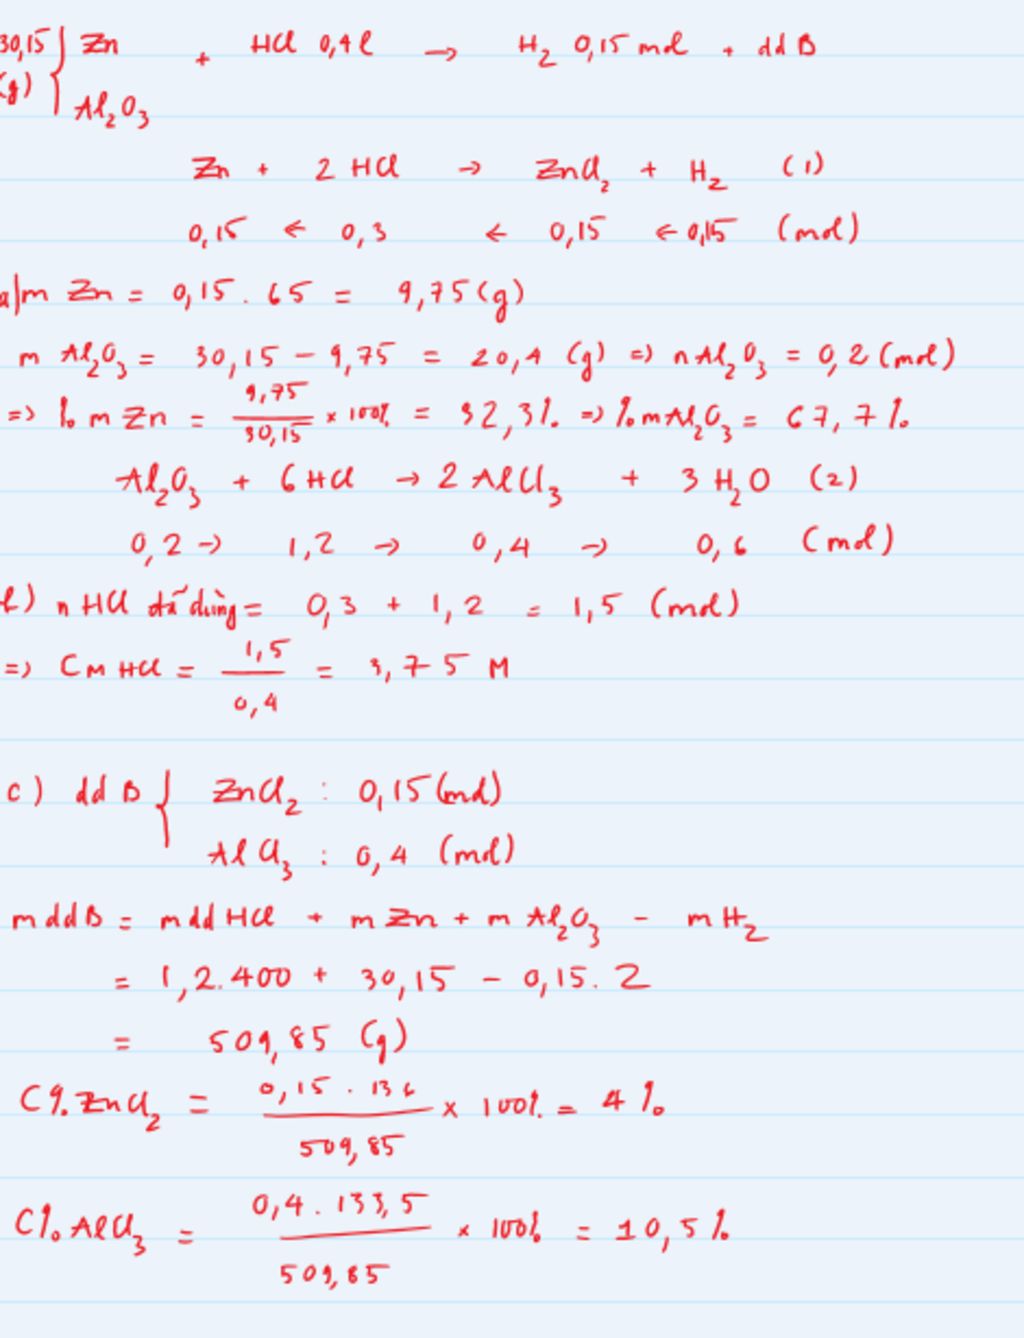 30,15 { Zn + HCl 0,4l → H₂ 0,15 mol + dd B
(g) Al₂O₃
Zn + 2 HCl → ZnCl₂ + H₂ (1)
0,15 ← 0,3 ← 0,15 ← 0,15 (mol)
a/m Zn = 0,15 . 65 = 9,75 (g)
m Al₂O₃ = 30,15 - 9,75 = 20,4 (g) => nAl₂O₃ = 0,2 (mol)
=> % m Zn = 9,75/30,15 × 100% = 32,3% => % mAl₂O₃ = 67,7%
Al₂O₃ + 6 HCl → 2 AlCl₃ + 3 H₂O (2)
0,2 → 1,2 → 0,4 → 0,6 (mol)
l) n HCl đã dùng = 0,3 + 1,2 = 1,5 (mol)
=> CM HCl = 1,5/0,4 = 3,75 M
c) dd B { ZnCl₂ : 0,15 (mol)
AlCl₃ : 0,4 (mol)
mddB = mdd HCl + m Zn + m Al₂O₃ - m H₂
= 1,2.400 + 30,15 - 0,15. 2
= 509,85 (g)
C%ZnCl₂ = 0,15 . 136/509,85 × 100% = 4%
C%AlCl₃ = 0,4 . 133,5/509,85 × 100% = 10,5%